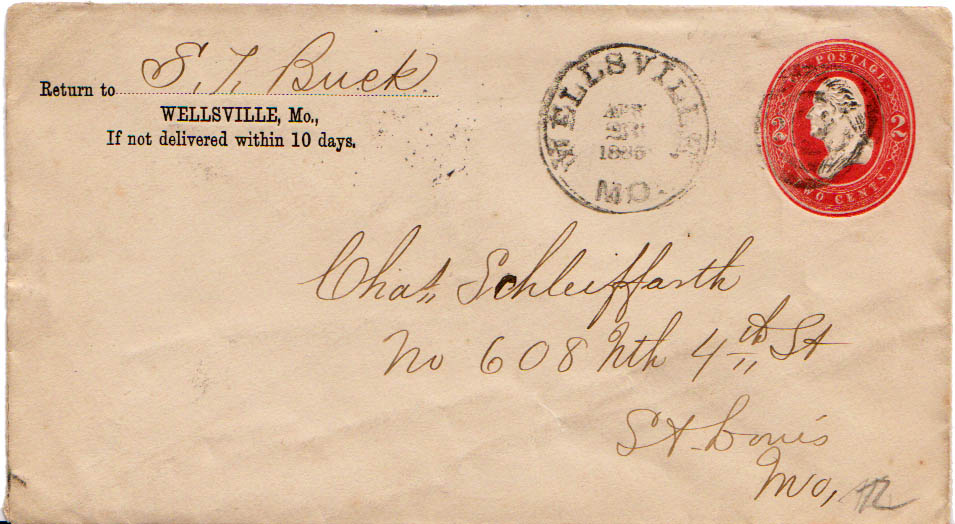 S. T. Buck
Return to
WELLSVILLE, Mo.,
If not delivered within 10 days.
WELLSVILLE
APR
1885
MO.
POSTAGE
2 2
TWO CENTS
Chas, Schleiffarth
No 608 Nth 4th St
St Louis
Mo,